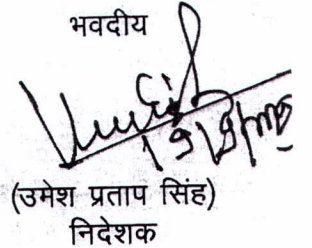 भवदीय
(उमेश प्रताप सिंह)
निदेशक